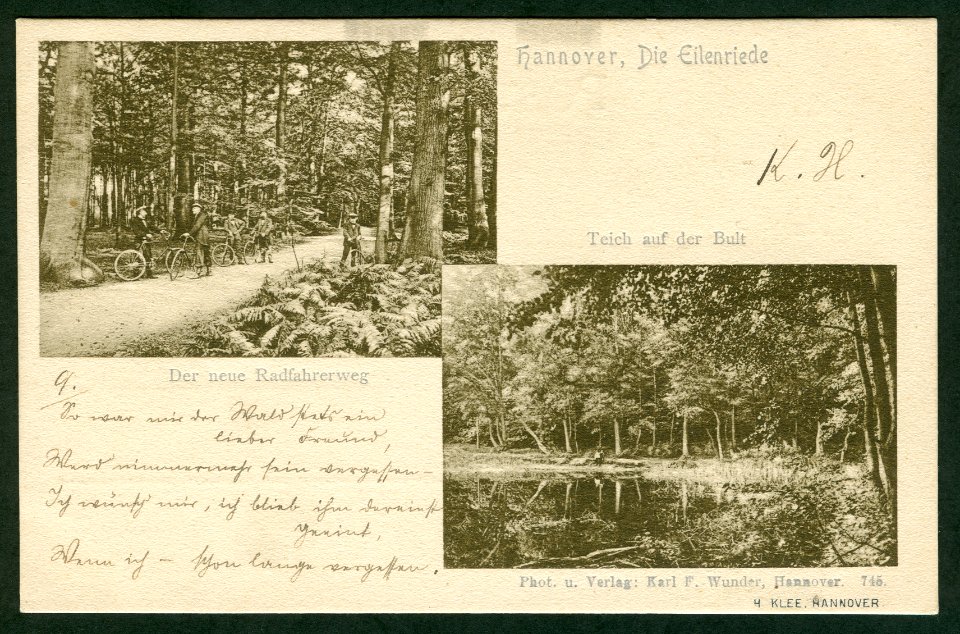 Hannover, Die Eilenriede
K. H.
Teich auf der Bult
Der neue Radfahrerweg
9.
So war mir der Wald stets ein
lieber Freund,
Werd nimmermehr sein vergessen –
Ich wünsch mir, ich blieb ihm dereinst
geeint,
Wenn ich – schon lange vergessen.
Phot. u. Verlag: Karl F. Wunder, Hannover. 745.
H KLEE, HANNOVER